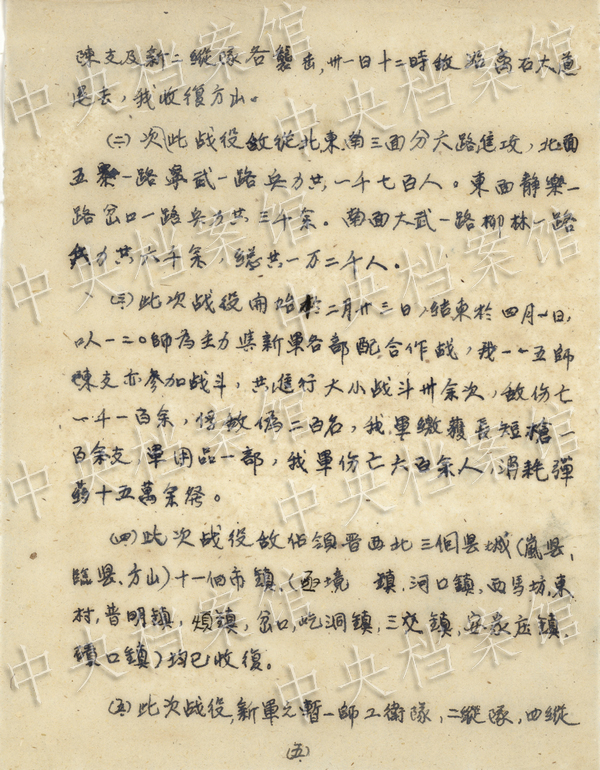 陳支及新二縱隊各襲击,卅一日十二時敌沿离石大道
退去,我收復方山。
(二)次此战役敌從北東南三面分六路進攻,北面
五寨一路寧武一路兵力共一千七百人。東面静樂一
路岔口一路兵力共三千余。南面大武一路柳林一路
兵力共六千余,總共一万二千人。
(三)此次战役開始於二月廿三日,结束於四月一日,
以一二〇師為主力与新軍各部配合作战,我一一五師
陳支亦參加战斗,共進行大小战斗卅余次,敌伤亡
一千一百余,俘敌偽二百名,我軍繳獲長短槍一
百余支,軍用品一部,我軍伤亡六百余人,消耗彈
葯十五萬余發。
(四)此次战役敌佔領晋西北三個县城(嵐县,
臨县,方山)十一個市鎮,(鎮,河口鎮,西馬坊,東
村,普明鎮,鎮,岔口,圪洞鎮,三交鎮,安家庄鎮,
磧口鎮)均已收復。
(五)此次战役,新軍之暫一師工衛隊,二縱隊,四縱
(五)
中央档案馆
中央档案馆
中央档案馆
中央档案馆
中央档案馆
中央档案馆